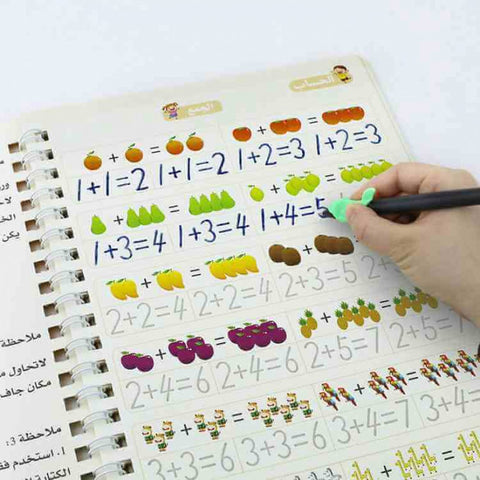 الحساب
الجمع
1+1=2 1+1=2 1+2=3 1+2=3
1+3=4 1+3=4 1+4=5
2+2=4 2+2=4 2+3=5
2+4=6 2+4=6 2+5=7 2+5=
3+3=6 3+3=6 3+4=7 3+4=
ملاحظة
لاتحاول
مكان جاف
ملاحظة 3:
1. استخدم
الكتابة